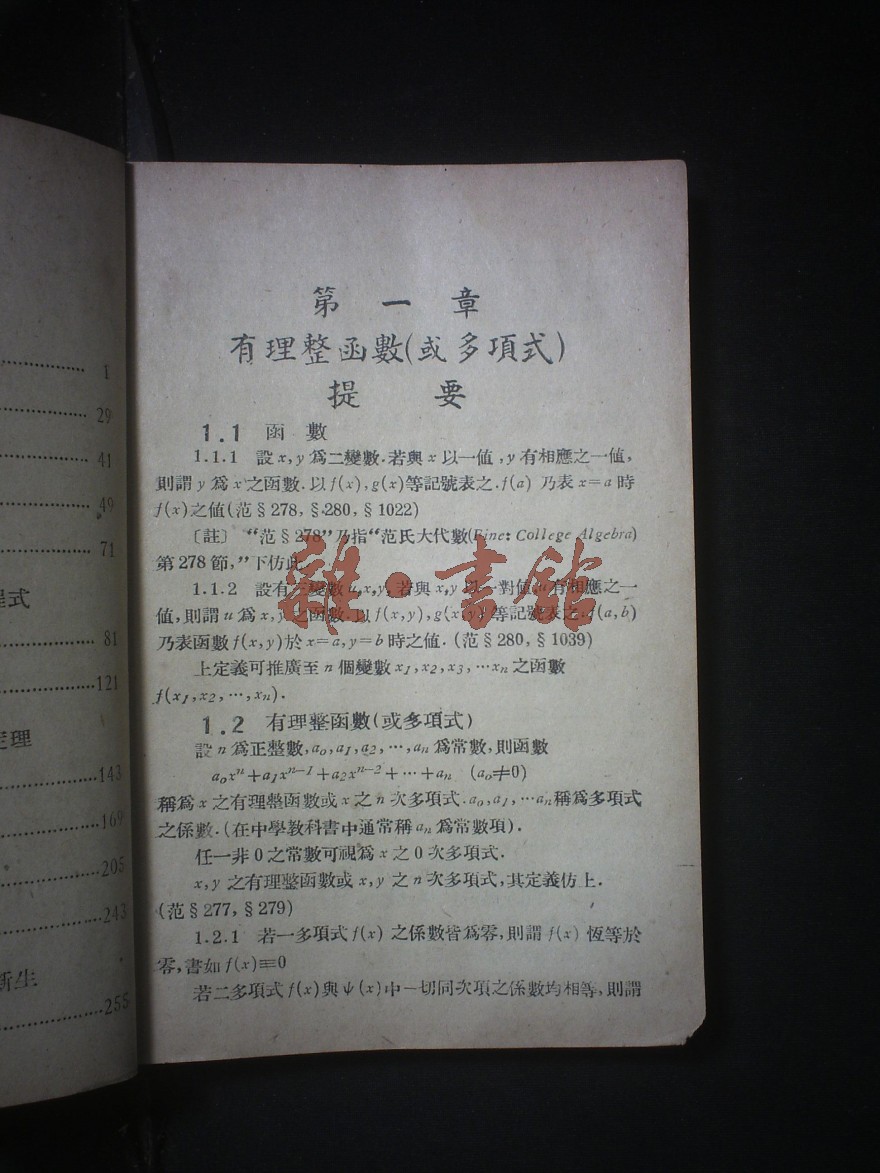 1
29
41
49
71
程式
81
121
定理
143
169
205
243
新生
255
第一章
有理整函數(或多項式)
提要
1.1 函數
1.1.1 設 x, y 爲二變數.若與 x 以一值,y 有相應之一値,
則謂 y 爲 x 之函數.以 f(x), g(x)等記號表之.f(a) 乃表 x=a 時
f(x)之値(范 § 278, § 280, § 1022)
〔註〕 “范 § 278”乃指“范氏大代數(Fine: College Algebra)
第 278 節,”下仿此
1.1.2 設有三變數 u,x,y, 若與 x,y 以一對値 u 有相應之一
値,則謂 u 爲 x,y 之函數.以 f(x,y), g(x,y) 等記號表之.f(a,b)
乃表函數 f(x,y)於 x=a,y=b 時之値. (范 § 280, § 1039)
上定義可推廣至 n 個變數 x₁,x₂,x₃,…xₙ 之函數
f(x₁,x₂,…,xₙ).
1.2 有理整函數(或多項式)
設 n 爲正整數,a₀,a₁,a₂,…,aₙ 爲常數,則函數
a₀xⁿ+a₁xⁿ⁻¹+a₂xⁿ⁻²+…+aₙ (a₀≠0)
稱爲 x 之有理整函數或 x 之 n 次多項式.a₀,a₁,…aₙ稱爲多項式
之係數.(在中學教科書中通常稱 aₙ 爲常數項).
任一非 0 之常數可視爲 x 之 0 次多項式.
x,y 之有理整函數或 x,y 之 n 次多項式,其定義仿上.
(范 § 277, § 279)
1.2.1 若一多項式 f(x) 之係數皆爲零,則謂 f(x) 恆等於
零,書如 f(x)≡0
若二多項式 f(x)與 ψ(x)中一切同次項之係數均相等,則謂
雜·書館